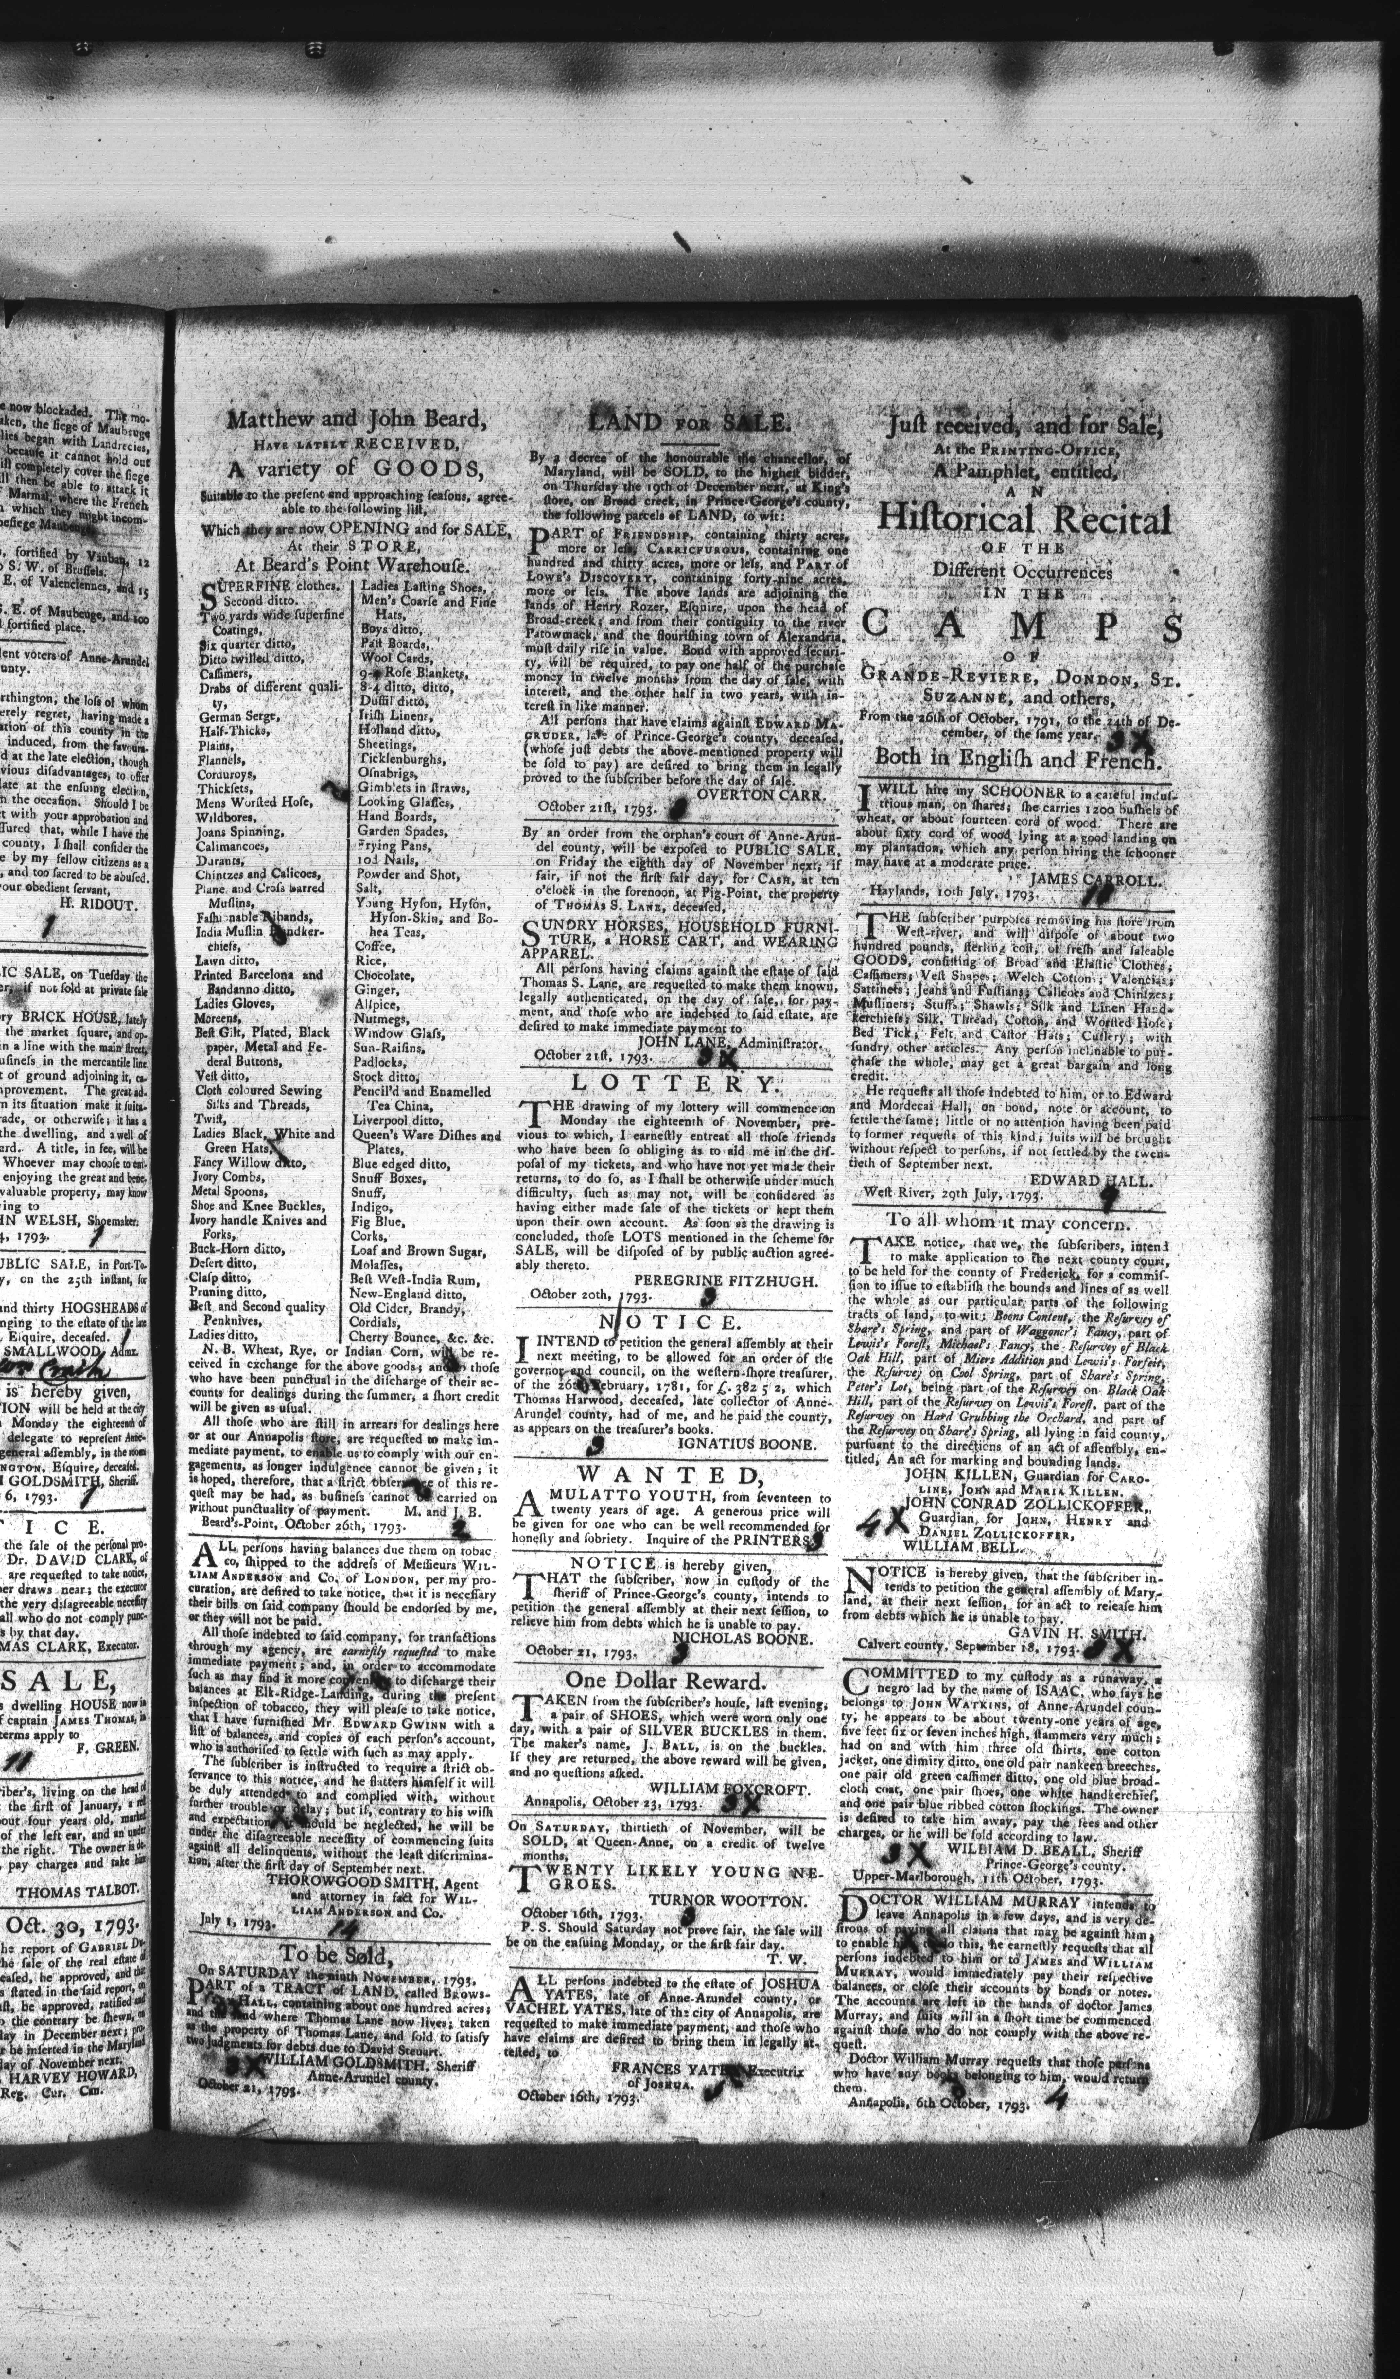 e now blockaded. The mo-
aken, the siege of Maubeuge
lies began with Landrecies,
because it cannot hold out
ill completely cover the siege
ill then be able to attack it
Marmal, where the French
n which they might incom-
besiege Maubeuge.
, fortified by Vauban, 12
S. W. of Brussels.
E. of Valenciennes, and 15
. E. of Maubeuge, and 100
fortified place.
ent voters of Anne-Arundel
unty.
rthington, the loss of whom
erely regret, having made a
ation of this county in the
induced, from the favoura-
d at the late election, though
vious disadvantages, to offer
late at the ensuing election,
n the occasion. Should I be
t with your approbation and
ssured that, while I have the
county, I shall consider the
e by my fellow citizens as a
, and too sacred to be abused.
our obedient servant,
H. RIDOUT.
1
IC SALE, on Tuesday the
er, if not sold at private sale
ry BRICK HOUSE, lately
the market square, and op-
n a line with the main street,
usiness in the mercantile line
t of ground adjoining it, ca-
provement. The great ad-
n its situation make it suita-
rade, or otherwise; it has a
the dwelling, and a well of
ard. A title, in fee, will be
Whoever may choose to
enjoying the great and bene-
valuable property, may know
ing to
HN WELSH, Shoemaker.
4, 1793. 1
UBLIC SALE, in Port-To-
y, on the 25th instant, for
and thirty HOGSHEADS of
nging to the estate of the late
, Esquire, deceased. 1
SMALLWOOD, Admx.
is hereby given,
ION will be held at the city
Monday the eighteenth of
delegate to represent Anne-
general assembly, in the room
NGTON, Esquire, deceased.
GOLDSMITH, Sheriff.
6, 1793. 1
ICE.
the sale of the personal pro-
Dr. DAVID CLARK, of
are requested to take notice,
er draws near; the executor
the very disagreeable necessity
all who do not comply punc-
s by that day.
MAS CLARK, Executor.
SALE,
s dwelling HOUSE now in
f captain JAMES THOMAS, in
terms apply to
F. GREEN.
11
riber's, living on the head of
the first of January, a red
out four years old, marked
of the left ear, and an under
the right. The owner is de-
, pay charges and take him
THOMAS TALBOT.
Oct. 30, 1793.
he report of GABRIEL Du-
he sale of the real estate of
eased, be approved, and that
s stated in the said report, on
st, be approved, ratified and
o the contrary be shewn, on
day in December next; pro-
r be inserted in the Maryland
day of November next.
HARVEY HOWARD,
Reg. Cur. Can.
Matthew and John Beard,
HAVE LATELY RECEIVED,
A variety of GOODS,
Suitable to the present and approaching seasons, agree-
able to the following list,
Which they are now OPENING and for SALE,
At their STORE,
At Beard's Point Warehouse.
SUPERFINE clothes.
Second ditto.
Two yards wide superfine
Coatings,
Six quarter ditto,
Ditto twilled ditto,
Cassimers,
Drabs of different quali-
ty,
German Serge,
Half-Thicks,
Plains,
Flannels,
Corduroys,
Thicksets,
Mens Worsted Hose,
Wildbores,
Joans Spinning,
Calimancoes,
Durants,
Chintzes and Calicoes,
Plane and Cross barred
Muslins,
Fashionable Ribands,
India Muslin Handker-
chiefs,
Lawn ditto,
Printed Barcelona and
Bandanno ditto,
Ladies Gloves,
Moreens,
Best Gilt, Plated, Black
paper, Metal and Fe-
deral Buttons,
Vest ditto,
Cloth coloured Sewing
Silks and Threads,
Twist,
Ladies Black, White and
Green Hats,
Fancy Willow ditto,
Ivory Combs,
Metal Spoons,
Shoe and Knee Buckles,
Ivory handle Knives and
Forks,
Buck-Horn ditto,
Desert ditto,
Clasp ditto,
Pruning ditto,
Best and Second quality
Penknives,
Ladies ditto,
Ladies Lasting Shoes,
Men's Coarse and Fine
Hats,
Boys ditto,
Past Boards,
Wool Cards,
9-4 Rose Blankets,
8-4 ditto, ditto,
Duffil ditto,
Irish Linens,
Holland ditto,
Sheetings,
Ticklenburghs,
Osnabrigs,
Gimblets in straws,
Looking Glasses,
Hand Boards,
Garden Spades,
Frying Pans,
10d Nails,
Powder and Shot,
Salt,
Young Hyson, Hyson,
Hyson-Skin, and Bo-
hea Teas,
Coffee,
Rice,
Chocolate,
Ginger,
Alspice,
Nutmegs,
Window Glass,
Sun-Raisins,
Padlocks,
Stock ditto,
Pencil'd and Enamelled
Tea China,
Liverpool ditto,
Queen's Ware Dishes and
Plates,
Blue edged ditto,
Snuff Boxes,
Snuff,
Indigo,
Fig Blue,
Corks,
Loaf and Brown Sugar,
Molasses,
Best West-India Rum,
New-England ditto,
Old Cider, Brandy,
Cordials,
Cherry Bounce, &c. &c.
N. B. Wheat, Rye, or Indian Corn, will be re-
ceived in exchange for the above goods; and to those
who have been punctual in the discharge of their ac-
counts for dealings during the summer, a short credit
will be given as usual.
All those who are still in arrears for dealings here
or at our Annapolis store, are requested to make im-
mediate payment, to enable us to comply with our en-
gagements, as longer indulgence cannot be given; it
is hoped, therefore, that a strict observance of this re-
quest may be had, as business cannot be carried on
without punctuality of payment. M. and J. B.
Beard's-Point, October 26th, 1793. 2
ALL persons having balances due them on tobac
co, shipped to the address of Messieurs WIL-
LIAM ANDERSON and Co. of LONDON, per my pro-
curation, are desired to take notice, that it is necessary
their bills on said company should be endorsed by me,
or they will not be paid.
All those indebted to said company, for transactions
through my agency, are earnestly requested to make
immediate payment; and, in order to accommodate
such as may find it more convenient to discharge their
balances at Elk-Ridge-Landing, during the present
inspection of tobacco, they will please to take notice,
that I have furnished Mr. EDWARD GWINN with a
list of balances, and copies of each person's account,
who is authorised to settle with such as may apply.
The subscriber is instructed to require a strict ob-
servance to this notice, and he flatters himself it will
be duly attended to and complied with, without
further trouble or delay; but if, contrary to his wish
and expectation should be neglected, he will be
under the disagreeable necessity of commencing suits
against all delinquents, without the least discrimina-
tion, after the first day of September next.
THOROWGOOD SMITH, Agent
and attorney in fact for WIL-
LIAM ANDERSON and Co.
July 1, 1793. 14
To be Sold,
On SATURDAY the ninth NOVEMBER, 1793,
PART of a TRACT of LAND, called BROWS-
HALL, containing about one hundred acres;
and the land where Thomas Lane now lives; taken
as the property of Thomas Lane, and sold to satisfy
two judgments for debts due to David Steuart.
3X WILLIAM GOLDSMITH, Sheriff
Anne-Arundel county.
October 21, 1793.
LAND FOR SALE.
By a decree of the honourable the chancellor, of
Maryland, will be SOLD, to the highest bidder,
on Thursday the 19th of December next, at King's
store, on Broad creek, in Prince-George's county,
the following parcels of LAND, to wit:
PART of FRIENDSHIP, containing thirty acres,
more or less, CARRICFURGUS, containing one
hundred and thirty acres, more or less, and PART of
LOWE'S DISCOVERY, containing forty-nine acres,
more or less. The above lands are adjoining the
lands of Henry Rozer, Esquire, upon the head of
Broad-creek; and from their contiguity to the river
Patowmack, and the flourishing town of Alexandria,
must daily rise in value. Bond with approved securi-
ty, will be required, to pay one half of the purchase
money in twelve months from the day of sale, with
interest, and the other half in two years, with in-
terest in like manner.
All persons that have claims against EDWARD MA-
GRUDER, late of Prince-George's county, deceased,
(whose just debts the above-mentioned property will
be sold to pay) are desired to bring them in legally
proved to the subscriber before the day of sale.
OVERTON CARR.
October 21st, 1793.
By an order from the orphan's court of Anne-Arun-
del county, will be exposed to PUBLIC SALE,
on Friday the eighth day of November next, if
fair, if not the first fair day, for CASH, at ten
o'clock in the forenoon, at Pig-Point, the property
of THOMAS S. LANE, deceased,
SUNDRY HORSES, HOUSEHOLD FURNI-
TURE, a HORSE CART, and WEARING
APPAREL.
All persons having claims against the estate of said
Thomas S. Lane, are requested to make them known,
legally authenticated, on the day of sale, for pay-
ment, and those who are indebted to said estate, are
desired to make immediate payment to
JOHN LANE, Administrator.
October 21st, 1793. 3X
LOTTERY.
THE drawing of my lottery will commence on
Monday the eighteenth of November, pre-
vious to which, I earnestly entreat all those friends
who have been so obliging as to aid me in the dis-
posal of my tickets, and who have not yet made their
returns, to do so, as I shall be otherwise under much
difficulty, such as may not, will be considered as
having either made sale of the tickets or kept them
upon their own account. As soon as the drawing is
concluded, those LOTS mentioned in the scheme for
SALE, will be disposed of by public auction agree-
ably thereto.
PEREGRINE FITZHUGH.
October 20th, 1793. 3
NOTICE.
I INTEND to petition the general assembly at their
next meeting, to be allowed for an order of the
governor and council, on the western-shore treasurer,
of the 26th February, 1781, for £. 382 5 2, which
Thomas Harwood, deceased, late collector of Anne-
Arundel county, had of me, and he paid the county,
as appears on the treasurer's books.
3 IGNATIUS BOONE.
WANTED,
A MULATTO YOUTH, from seventeen to
twenty years of age. A generous price will
be given for one who can be well recommended for
honesty and sobriety. Inquire of the PRINTERS. 3
NOTICE is hereby given,
THAT the subscriber, now in custody of the
sheriff of Prince-George's county, intends to
petition the general assembly at their next session, to
relieve him from debts which he is unable to pay.
NICHOLAS BOONE.
October 21, 1793. 3
One Dollar Reward.
TAKEN from the subscriber's house, last evening,
a pair of SHOES, which were worn only one
day, with a pair of SILVER BUCKLES in them.
The maker's name, J. BALL, is on the buckles.
If they are returned, the above reward will be given,
and no questions asked.
WILLIAM FOXCROFT.
Annapolis, October 23, 1793. 3X
On SATURDAY, thirtieth of November, will be
SOLD, at Queen-Anne, on a credit of twelve
months,
TWENTY LIKELY YOUNG NE-
GROES.
TURNOR WOOTTON.
October 16th, 1793. 3
P. S. Should Saturday not prove fair, the sale will
be on the ensuing Monday, or the first fair day.
T. W.
ALL persons indebted to the estate of JOSHUA
YATES, late of Anne-Arundel county, or
VACHEL YATES, late of the city of Annapolis, are
requested to make immediate payment, and those who
have claims are desired to bring them in legally at-
tested, to
FRANCES YATES, Executrix
of JOSHUA.
October 16th, 1793.
Just received, and for Sale,
At the PRINTING-OFFICE,
A Pamphlet, entitled,
AN
Historical Recital
OF THE
Different Occurrences
IN THE
CAMPS
OF
GRANDE-REVIERE, DONDON, ST.
SUZANNE, and others,
From the 26th of October, 1791, to the 24th of De-
cember, of the same year. 3X
Both in English and French.
I WILL hire my SCHOONER to a careful indus-
trious man, on shares; she carries 1200 bushels of
wheat, or about fourteen cord of wood. There are
about sixty cord of wood lying at a good landing on
my plantation, which any person hiring the schooner
may have at a moderate price.
JAMES CARROLL.
Haylands, 10th July, 1793.
THE subscriber purposes removing his store from
West-river, and will dispose of about two
hundred pounds, sterling cost, of fresh and saleable
GOODS, consisting of Broad and Elastic Clothes;
Cassimers; Vest Shapes; Welch Cotton; Valencias;
Sattinets; Jeans and Fustians; Calicoes and Chintzes;
Muslinets; Stuffs; Shawls; Silk and Linen Hand-
kerchiefs; Silk, Thread, Cotton, and Worsted Hose;
Bed Tick; Felt and Castor Hats; Cutlery; with
sundry other articles. Any person inclinable to pur-
chase the whole, may get a great bargain and long
credit.
He requests all those indebted to him, or to Edward
and Mordecai Hall, on bond, note or account, to
settle the same; little or no attention having been paid
to former requests of this kind; suits will be brought
without respect to persons, if not settled by the twen-
tieth of September next.
EDWARD HALL.
West River, 29th July, 1793. 9
To all whom it may concern.
TAKE notice, that we, the subscribers, intend
to make application to the next county court,
to be held for the county of Frederick, for a commis-
sion to issue to establish the bounds and lines of as well
the whole as our particular parts of the following
tracts of land, to wit; Boons Content, the Resurvey of
Share's Spring, and part of Waggoner's Fancy, part of
Lewis's Forest, Michael's Fancy, the Resurvey of Black
Oak Hill, part of Miers Addition and Lewis's Forfeit,
the Resurvey on Cool Spring, part of Share's Spring,
Peter's Lot, being part of the Resurvey on Black Oak
Hill, part of the Resurvey on Lewis's Forest, part of the
Resurvey on Hard Grubbing the Orchard, and part of
the Resurvey on Share's Spring, all lying in said county,
pursuant to the directions of an act of assembly, en-
titled, An act for marking and bounding lands.
JOHN KILLEN, Guardian for CARO-
LINE, JOHN and MARIA KILLEN.
JOHN CONRAD ZOLLICKOFFER,
4X Guardian, for JOHN, HENRY and
DANIEL ZOLLICKOFFER,
WILLIAM BELL.
NOTICE is hereby given, that the subscriber in-
tends to petition the general assembly of Mary-
land, at their next session, for an act to release him
from debts which he is unable to pay.
GAVIN H. SMITH.
Calvert county, September 18, 1793. 3X
COMMITTED to my custody as a runaway, a
negro lad by the name of ISAAC, who says he
belongs to JOHN WATKINS, of Anne-Arundel coun-
ty; he appears to be about twenty-one years of age,
five feet six or seven inches high, stammers very much;
had on and with him three old shirts, one cotton
jacket, one dimity ditto, one old pair nankeen breeches,
one pair old green cassimer ditto, one old blue broad-
cloth coat, one pair shoes, one white handkerchief,
and one pair blue ribbed cotton stockings. The owner
is desired to take him away, pay the fees and other
charges, or he will be sold according to law.
3X WILLIAM D. BEALL, Sheriff
Prince-George's county.
Upper-Marlborough, 11th October, 1793.
DOCTOR WILLIAM MURRAY intends to
leave Annapolis in a few days, and is very de-
sirous of paying all claims that may be against him;
to enable him to do this, he earnestly requests that all
persons indebted to him or to JAMES and WILLIAM
MURRAY, would immediately pay their respective
balances, or close their accounts by bonds or notes.
The accounts are left in the hands of doctor James
Murray; and suits will in a short time be commenced
against those who do not comply with the above re-
quest.
Doctor William Murray requests that those persons
who have any books belonging to him, would return
them.
Annapolis, 6th October, 1793. 4